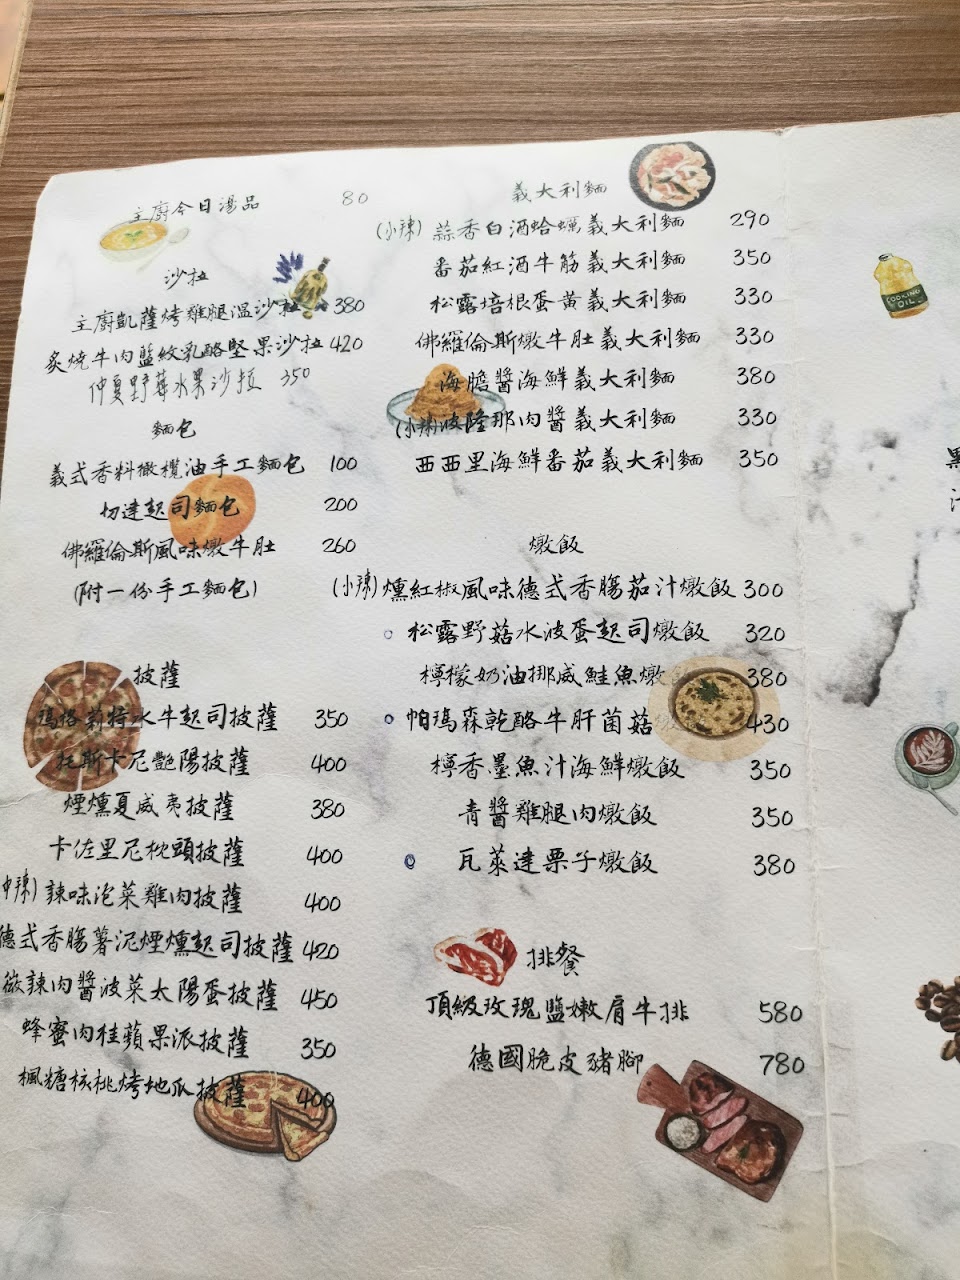 主廚今日湯品 80
沙拉
主廚凱薩烤雞腿溫沙拉 380
炙燒牛肉藍紋乳酪堅果沙拉 420
仲夏野莓水果沙拉 350
麵包
義式香料橄欖油手工麵包 100
切達起司麵包 200
佛羅倫斯風味燉牛肚 260
(附一份手工麵包)
披薩
瑪格莉特水牛起司披薩 350
托斯卡尼艷陽披薩 400
煙燻夏威夷披薩 380
卡佐里尼枕頭披薩 400
中辣) 辣味泡菜雞肉披薩 400
德式香腸薯泥煙燻起司披薩 420
微辣肉醬波菜太陽蛋披薩 450
蜂蜜肉桂蘋果派披薩 350
楓糖核桃烤地瓜披薩 400
義大利麵
(小辣) 蒜香白酒蛤蠣義大利麵 290
番茄紅酒牛筋義大利麵 350
松露培根蛋黃義大利麵 330
佛羅倫斯燉牛肚義大利麵 330
海膽醬海鮮義大利麵 380
(小辣)波隆那肉醬義大利麵 330
西西里海鮮番茄義大利麵 350
燉飯
(小辣) 燻紅椒風味德式香腸茄汁燉飯 300
松露野菇水波蛋起司燉飯 320
檸檬奶油挪威鮭魚燉飯 380
帕瑪森乾酪牛肝菌菇 430
檸香墨魚汁海鮮燉飯 350
青醬雞腿肉燉飯 350
瓦萊達栗子燉飯 380
排餐
頂級玫瑰鹽嫩肩牛排 580
德國脆皮豬腳 780
COOKING
OIL